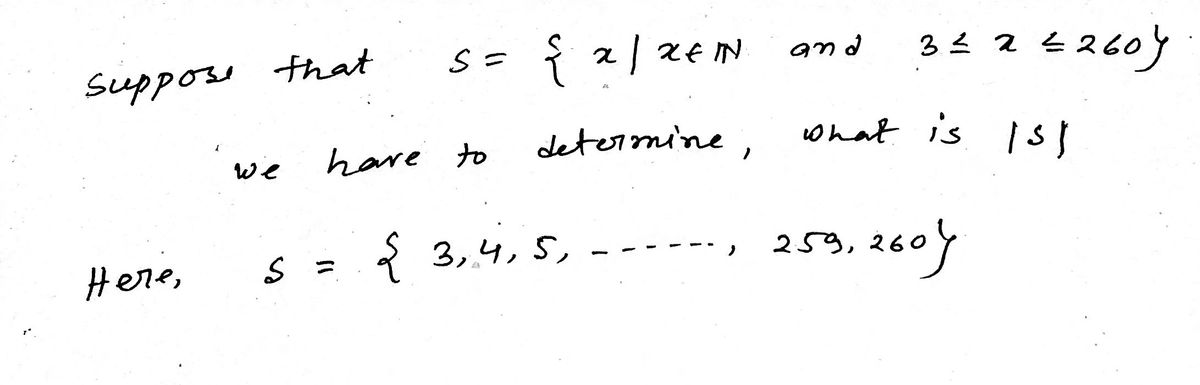 Suppose that S = { x | x ∈ ℕ and 3 ≤ x ≤ 260}
we have to determine, what is |S|
Here, S = { 3, 4, 5, ------, 259, 260}